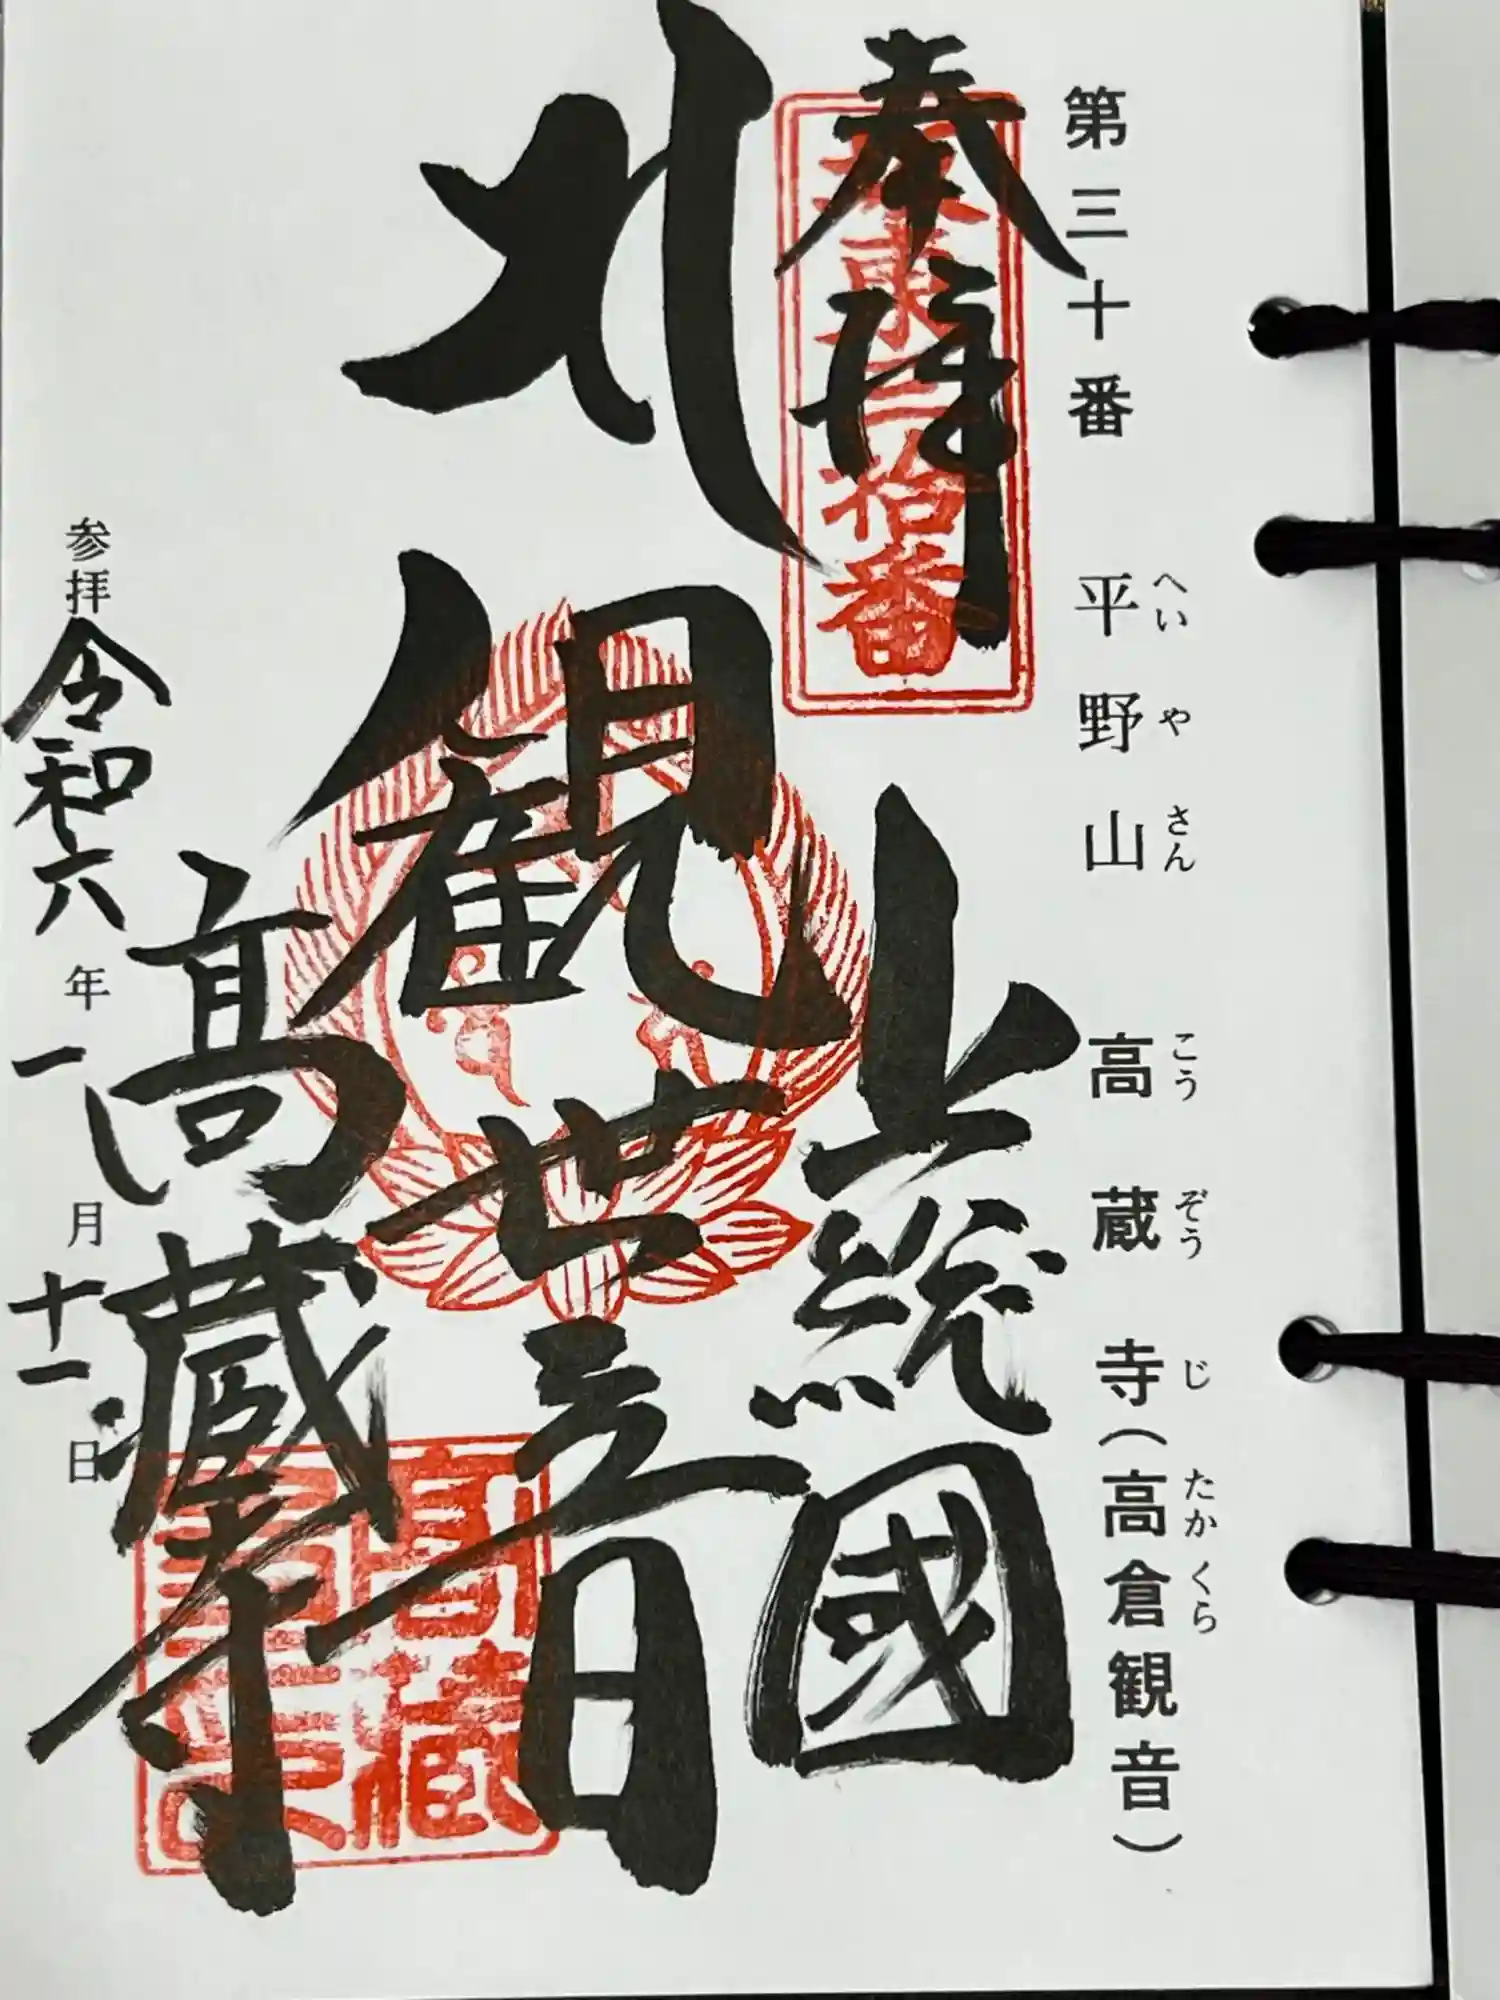 第三十番 平野山 高蔵寺(高倉観音)
へいやさん こうぞうじ たかくら
奉拝
坂東三拾番
上総國
北
観世音
高蔵寺
参拝 令和六年一月十一日